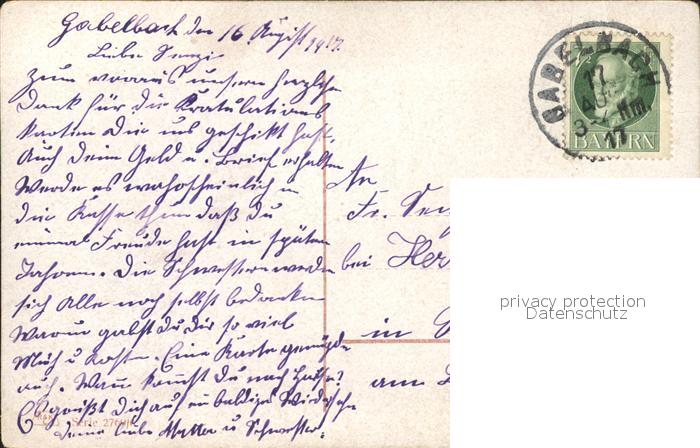 Gabelbach den 16 August 1917.
Liebe Senzi
Zum voraus unsern herzlichen
Dank für die Kratulations
karten Die uns geschikt hast,
Auch dein Geld u. Brief erhalten
Werde es wahrscheinlich in
die Kasse thun daß du
einmal Freude hast in später
Jahren. Die Schwestern werden
sich alle noch selbst bedanken
Warum gabst du dir so viel
Müh u Kosten. Eine Karte genügde
auch. Wann kommst du nach Hause?
Es grüßt Dich auf ein baldiges Wiedersehe
Deine liebe Mutter u Schwester.
Serie 276
GABELBACH
17
AUG
3-4 Nm
17
BAYERN
An
Fr. Sen
bei Her
in
am
privacy protection
Datenschutz